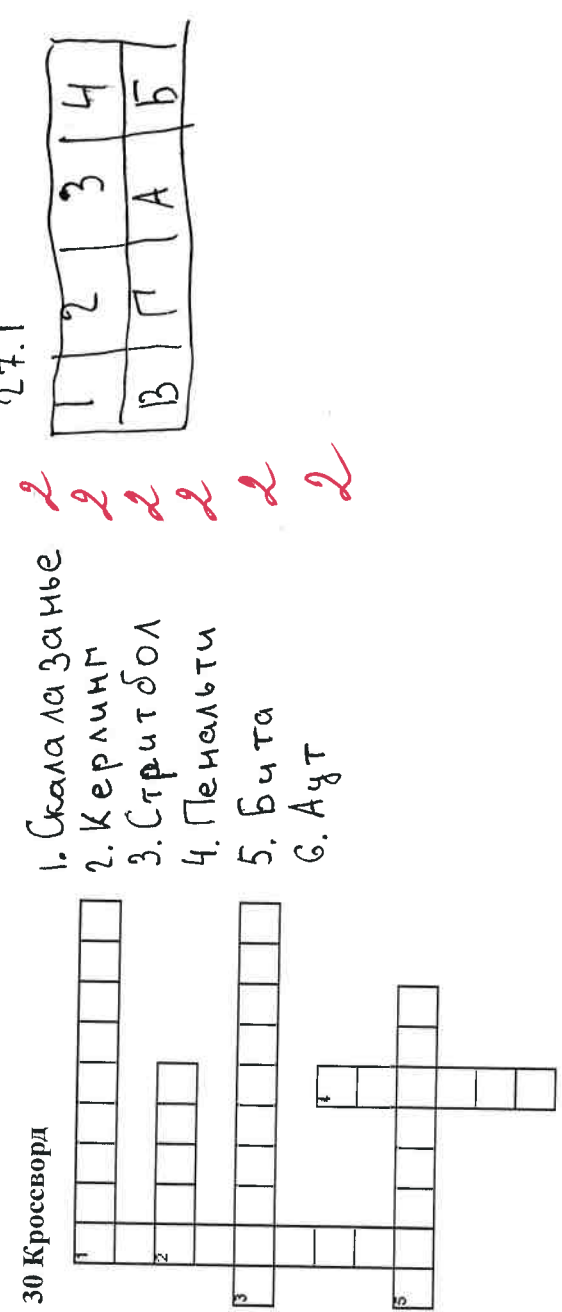 30 Кроссворд
1
2
3
4
5
1. Скалалазанье 2
2. Керлинг 2
3. Стритбол 2
4. Пенальти 2
5. Бита 2
6. Аут 2
27.1
1 2 3 4
В Г А Б